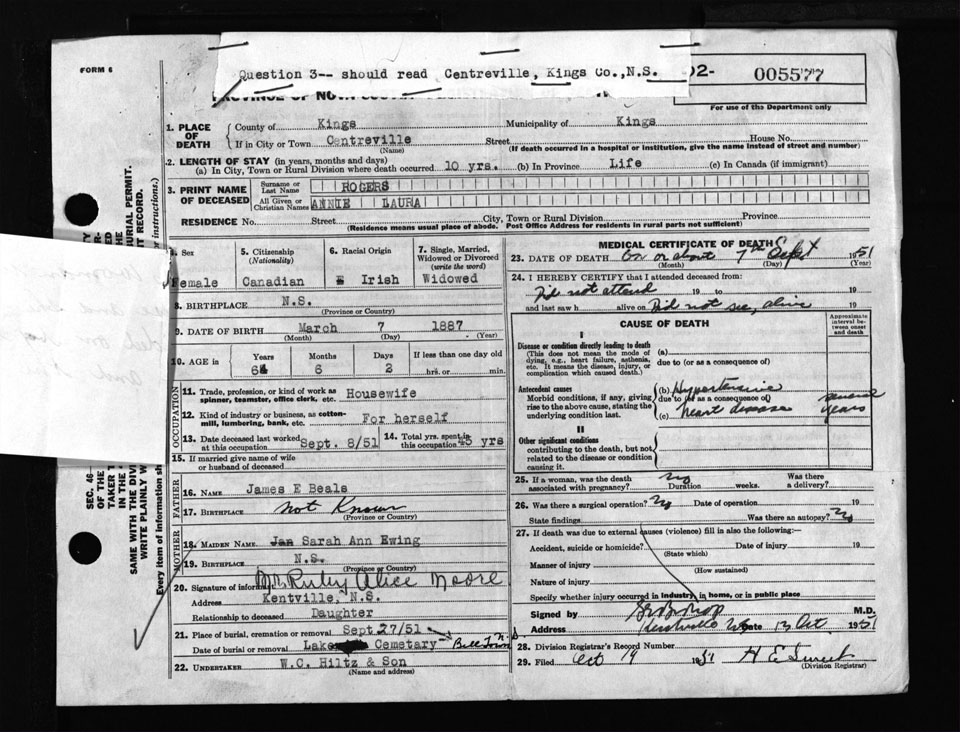 FORM 6
Question 3-- should read Centreville, Kings Co.,N.S.
02- 005577
For use of the Department only
1. PLACE OF DEATH
County of Kings Municipality of Kings
If in City or Town Centreville Street House No.
(Name) (If death occurred in a hospital or institution, give the name instead of street and number)
2. LENGTH OF STAY (in years, months and days)
(a) In City, Town or Rural Division where death occurred 10 yrs. (b) In Province Life (c) In Canada (if immigrant)
3. PRINT NAME OF DECEASED
Surname or Last Name ROGERS
All Given or Christian Names ANNIE LAURA
RESIDENCE No. Street City, Town or Rural Division Province
(Residence means usual place of abode. Post Office Address for residents in rural parts not sufficient)
4. Sex 5. Citizenship (Nationality) 6. Racial Origin 7. Single, Married, Widowed or Divorced (write the word)
Female Canadian Irish Widowed
8. BIRTHPLACE N.S.
(Province or Country)
9. DATE OF BIRTH March 7 1887
(Month) (Day) (Year)
10. AGE in Years Months Days If less than one day old
64 6 2 hrs. or min.
OCCUPATION
11. Trade, profession, or kind of work as spinner, teamster, office clerk, etc. Housewife
12. Kind of industry or business, as cotton-mill, lumbering, bank, etc. For herself
13. Date deceased last worked at this occupation Sept. 8/51 14. Total yrs. spent in this occupation 45 yrs
15. If married give name of wife or husband of deceased
FATHER
16. NAME James E Beals
17. BIRTHPLACE not Known
(Province or Country)
MOTHER
18. MAIDEN NAME Sarah Ann Ewing
19. BIRTHPLACE N.S.
(Province or Country)
20. Signature of informant Mrs Ruby Alice Moore
Address Kentville, N.S.
Relationship to deceased Daughter
21. Place of burial, cremation or removal Sept 27/51
Date of burial or removal Lake Cemetary Bill Town N.S.
22. UNDERTAKER W.C. Hiltz & Son
(Name and address)
MEDICAL CERTIFICATE OF DEATH
23. DATE OF DEATH On or about 7th Sept 1951
(Month) (Day) (Year)
24. I HEREBY CERTIFY that I attended deceased from:
Did not attend 19 to 19
and last saw h alive on Did not see, alive 19
CAUSE OF DEATH
Approximate interval between onset and death
I
Disease or condition directly leading to death
(This does not mean the mode of dying, e.g., heart failure, asthenia, etc. It means the disease, injury, or complication which caused death.)
(a)
due to (or as a consequence of)
Antecedent causes
Morbid conditions, if any, giving rise to the above cause, stating the underlying condition last.
(b) Hypertensive
due to (or as a consequence of)
(c) heart disease several years
II
Other significant conditions
contributing to the death, but not related to the disease or condition causing it.
25. If a woman, was the death associated with pregnancy? No Duration weeks. Was there a delivery?
26. Was there a surgical operation? No Date of operation 19
State findings Was there an autopsy? No
27. If death was due to external causes (violence) fill in also the following:—
Accident, suicide or homicide? Date of injury 19
(State which)
Manner of injury
(How sustained)
Nature of injury
Specify whether injury occurred in industry, in home, or in public place
Signed by M.D.
Address Kentville NS Date 13 Oct 1951
28. Division Registrar's Record Number
29. Filed Oct 19 1951 H E Sweet
(Division Registrar)
SEC. 46—
WRITE PLAINLY
Every item of information